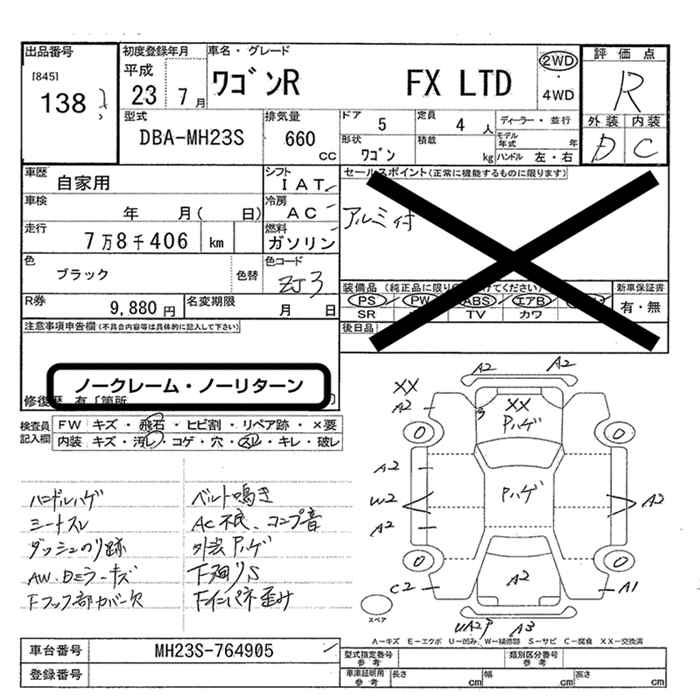 出品番号
[845]
138
初度登録年月
平成
23 7月
車名・グレード
ワゴンR FX LTD
2WD
・
4WD
評価点
R
外装 内装
D C
型式
DBA-MH23S
排気量
660 CC
ドア 5
定員 4 人
形状 ワゴン
積載 kg
ディーラー・並行
モデル年式 年
ハンドル 左・右
車歴 自家用
シフト IAT
セールスポイント(正常に機能するものに限ります)
アルミ付
車検 年 月( 日)
冷房 AC
走行 7万8千406 km
燃料 ガソリン
色 ブラック 色替
色コード ZJ3
装備品(純正品に限り
けてください)
新車保証書
有・無
PS PW ABS エアB
SR TV カワ
後日品
R券 9,880円
名変期限 月 日
注意事項申告欄(不具合内容等は具体的に記入して下さい)
ノークレーム・ノーリターン
検査員記入欄
FW キズ・飛石・ヒビ割・リペア跡・×要
内装 キズ・汚レ・コゲ・穴・スレ・キレ・破レ
ハンドルハゲ ベルト鳴き
シートスレ AC不良、コンプ音
ダッシュのり跡 外装Pハゲ
AW.Dミラーキズ 下廻りS
Fフック部カバー欠 Fインパネ歪み
A2 A2
XX
A2
XX
Pハゲ
0 0
A2
W2
A2
Pハゲ
A3
0 0
C2
A2
A1
UA2P A3
スペア
A－キズ E－エクボ U－凹み W－補修跡 S－サビ C－腐食 XX－交換済
車台番号 MH23S-764905
登録番号
型式指定番号 参考
類別区分番号 参考
車庫証明用 参考
長さ cm
幅 cm
高さ cm